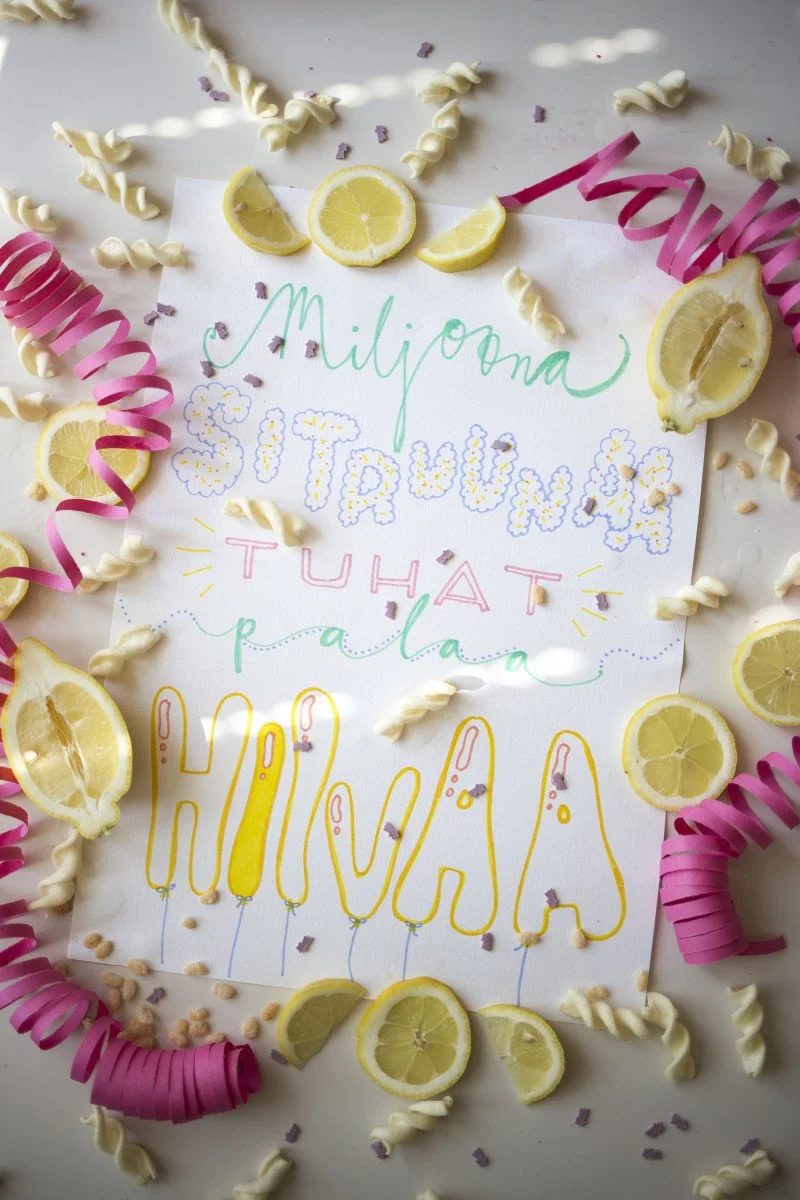 Miljoona
SITRUUNAA
TUHAT
palaa
HIIVAA